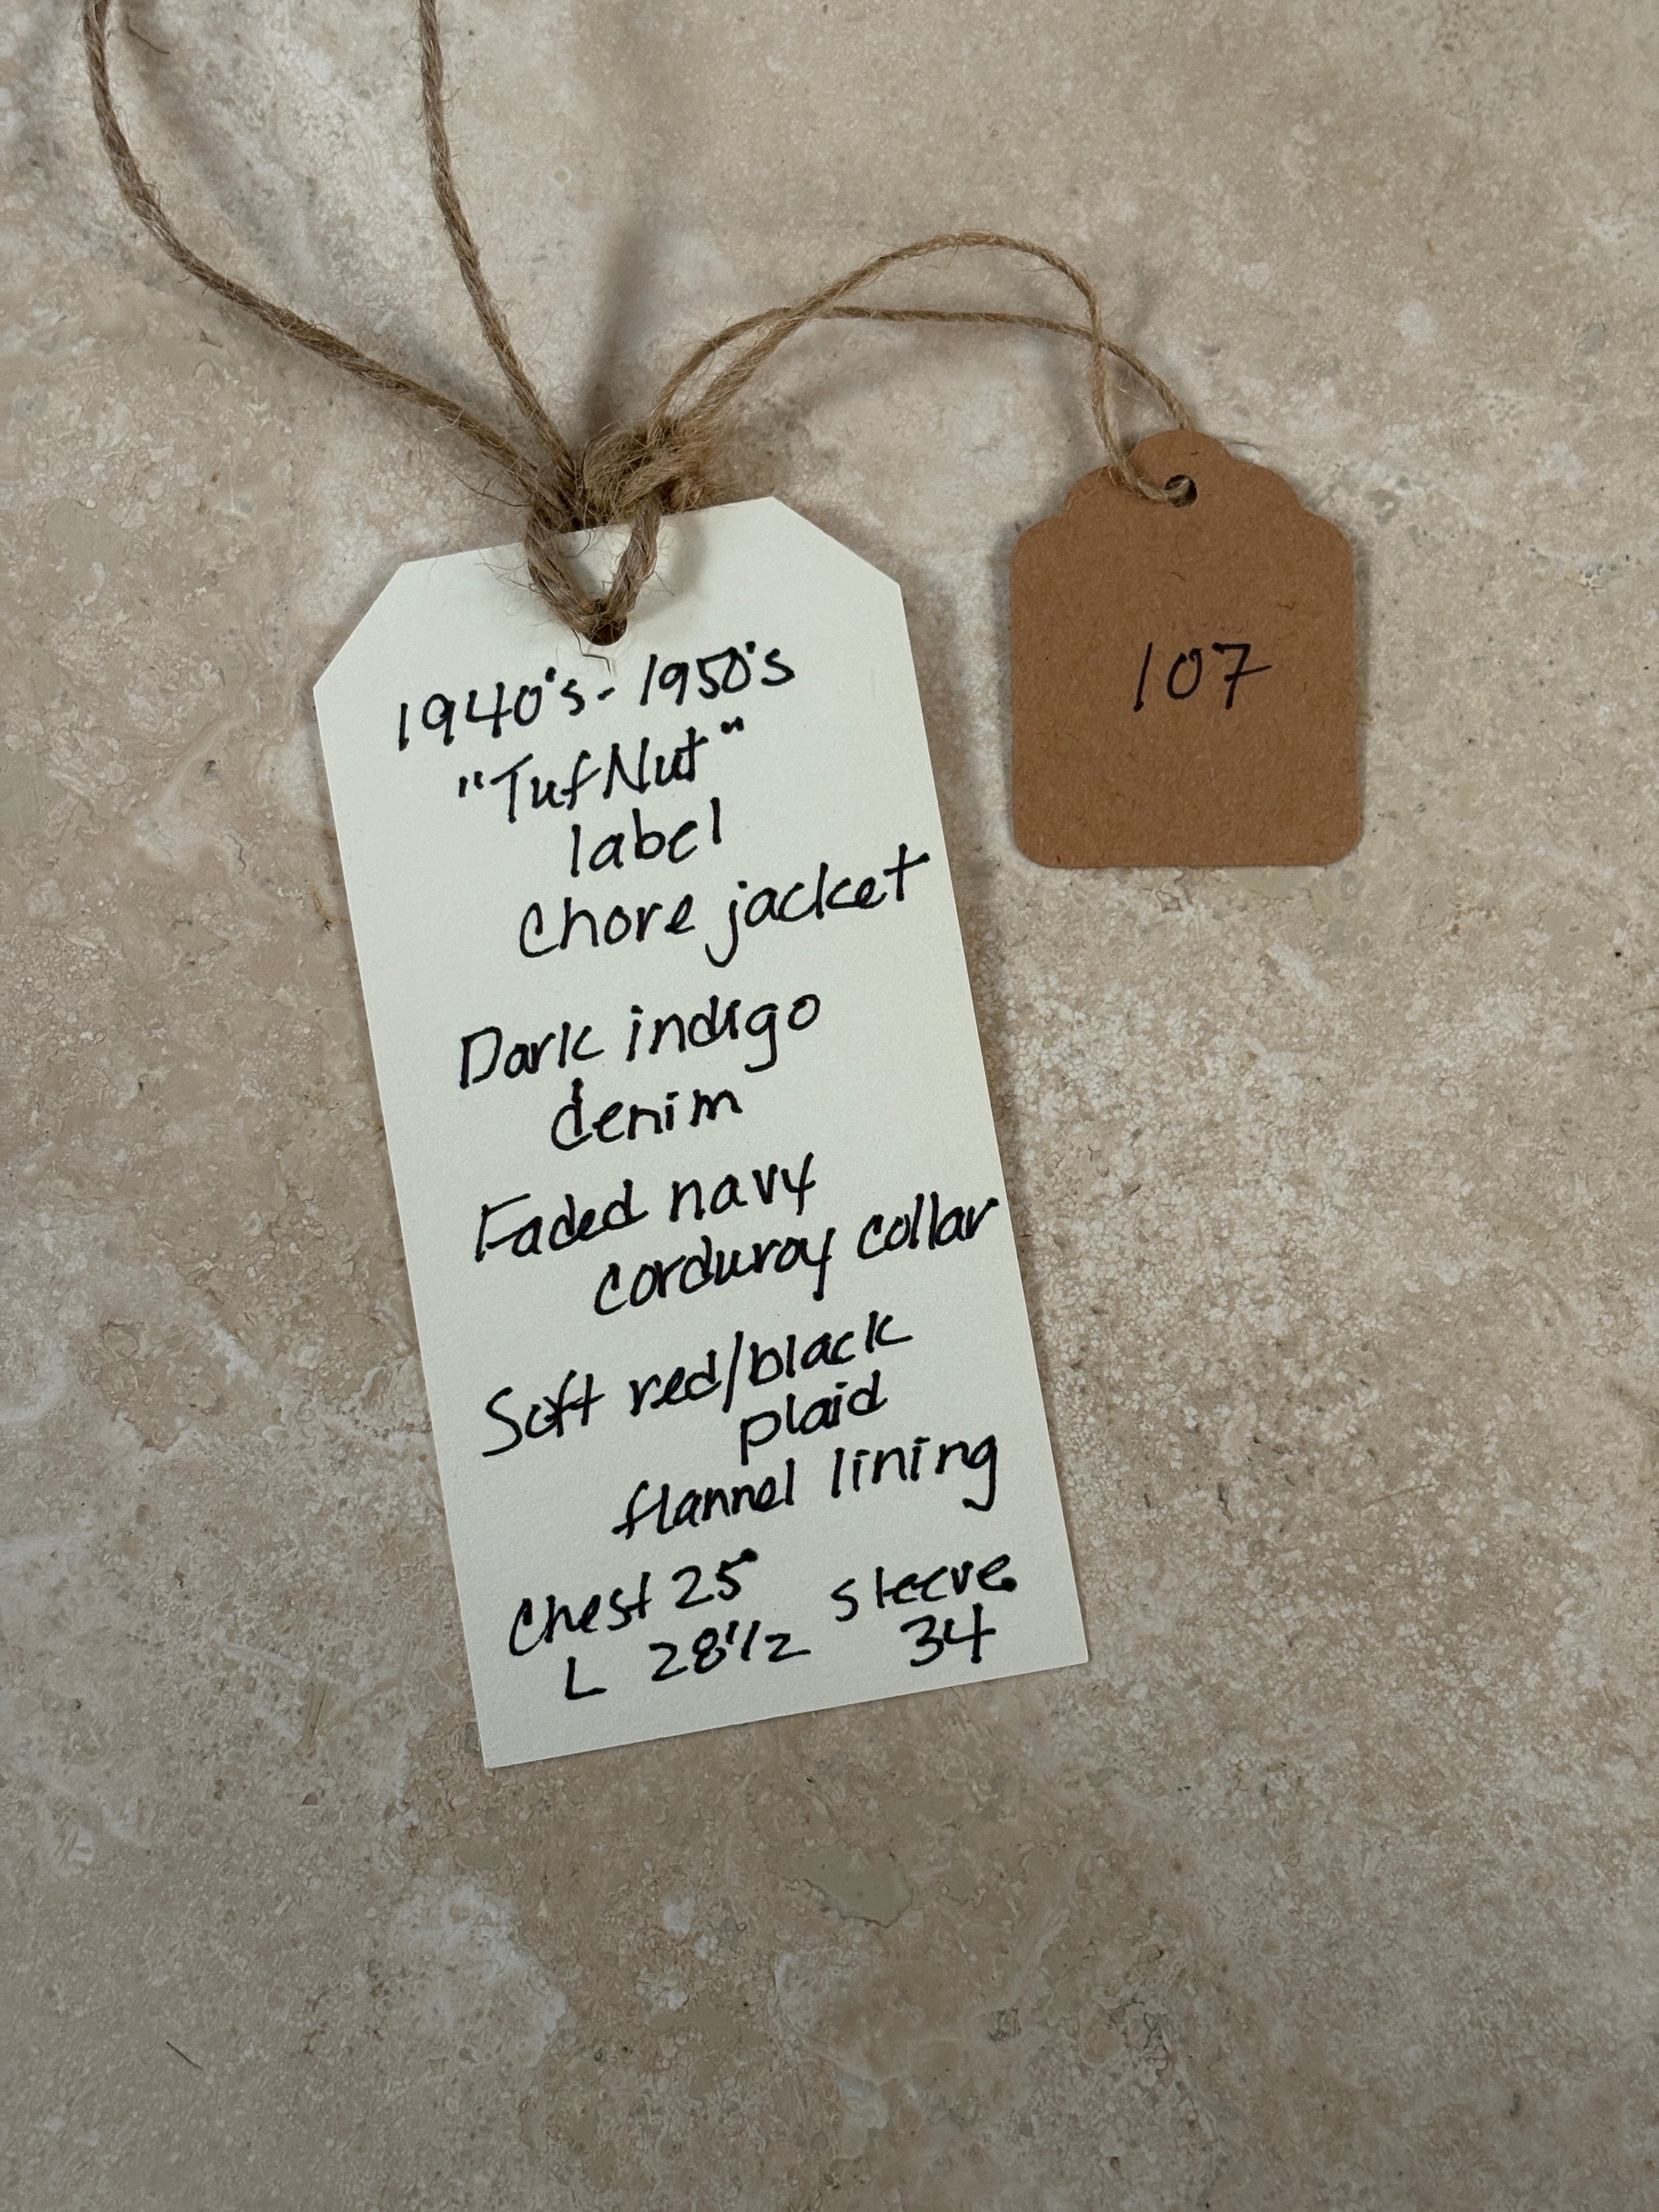 1940's - 1950's
"TufNut"
label
Chore jacket
Dark indigo
denim
Faded navy
corduroy collar
Soft red/black
plaid
flannel lining
Chest 25 sleeve
L 28 1/2 34
107